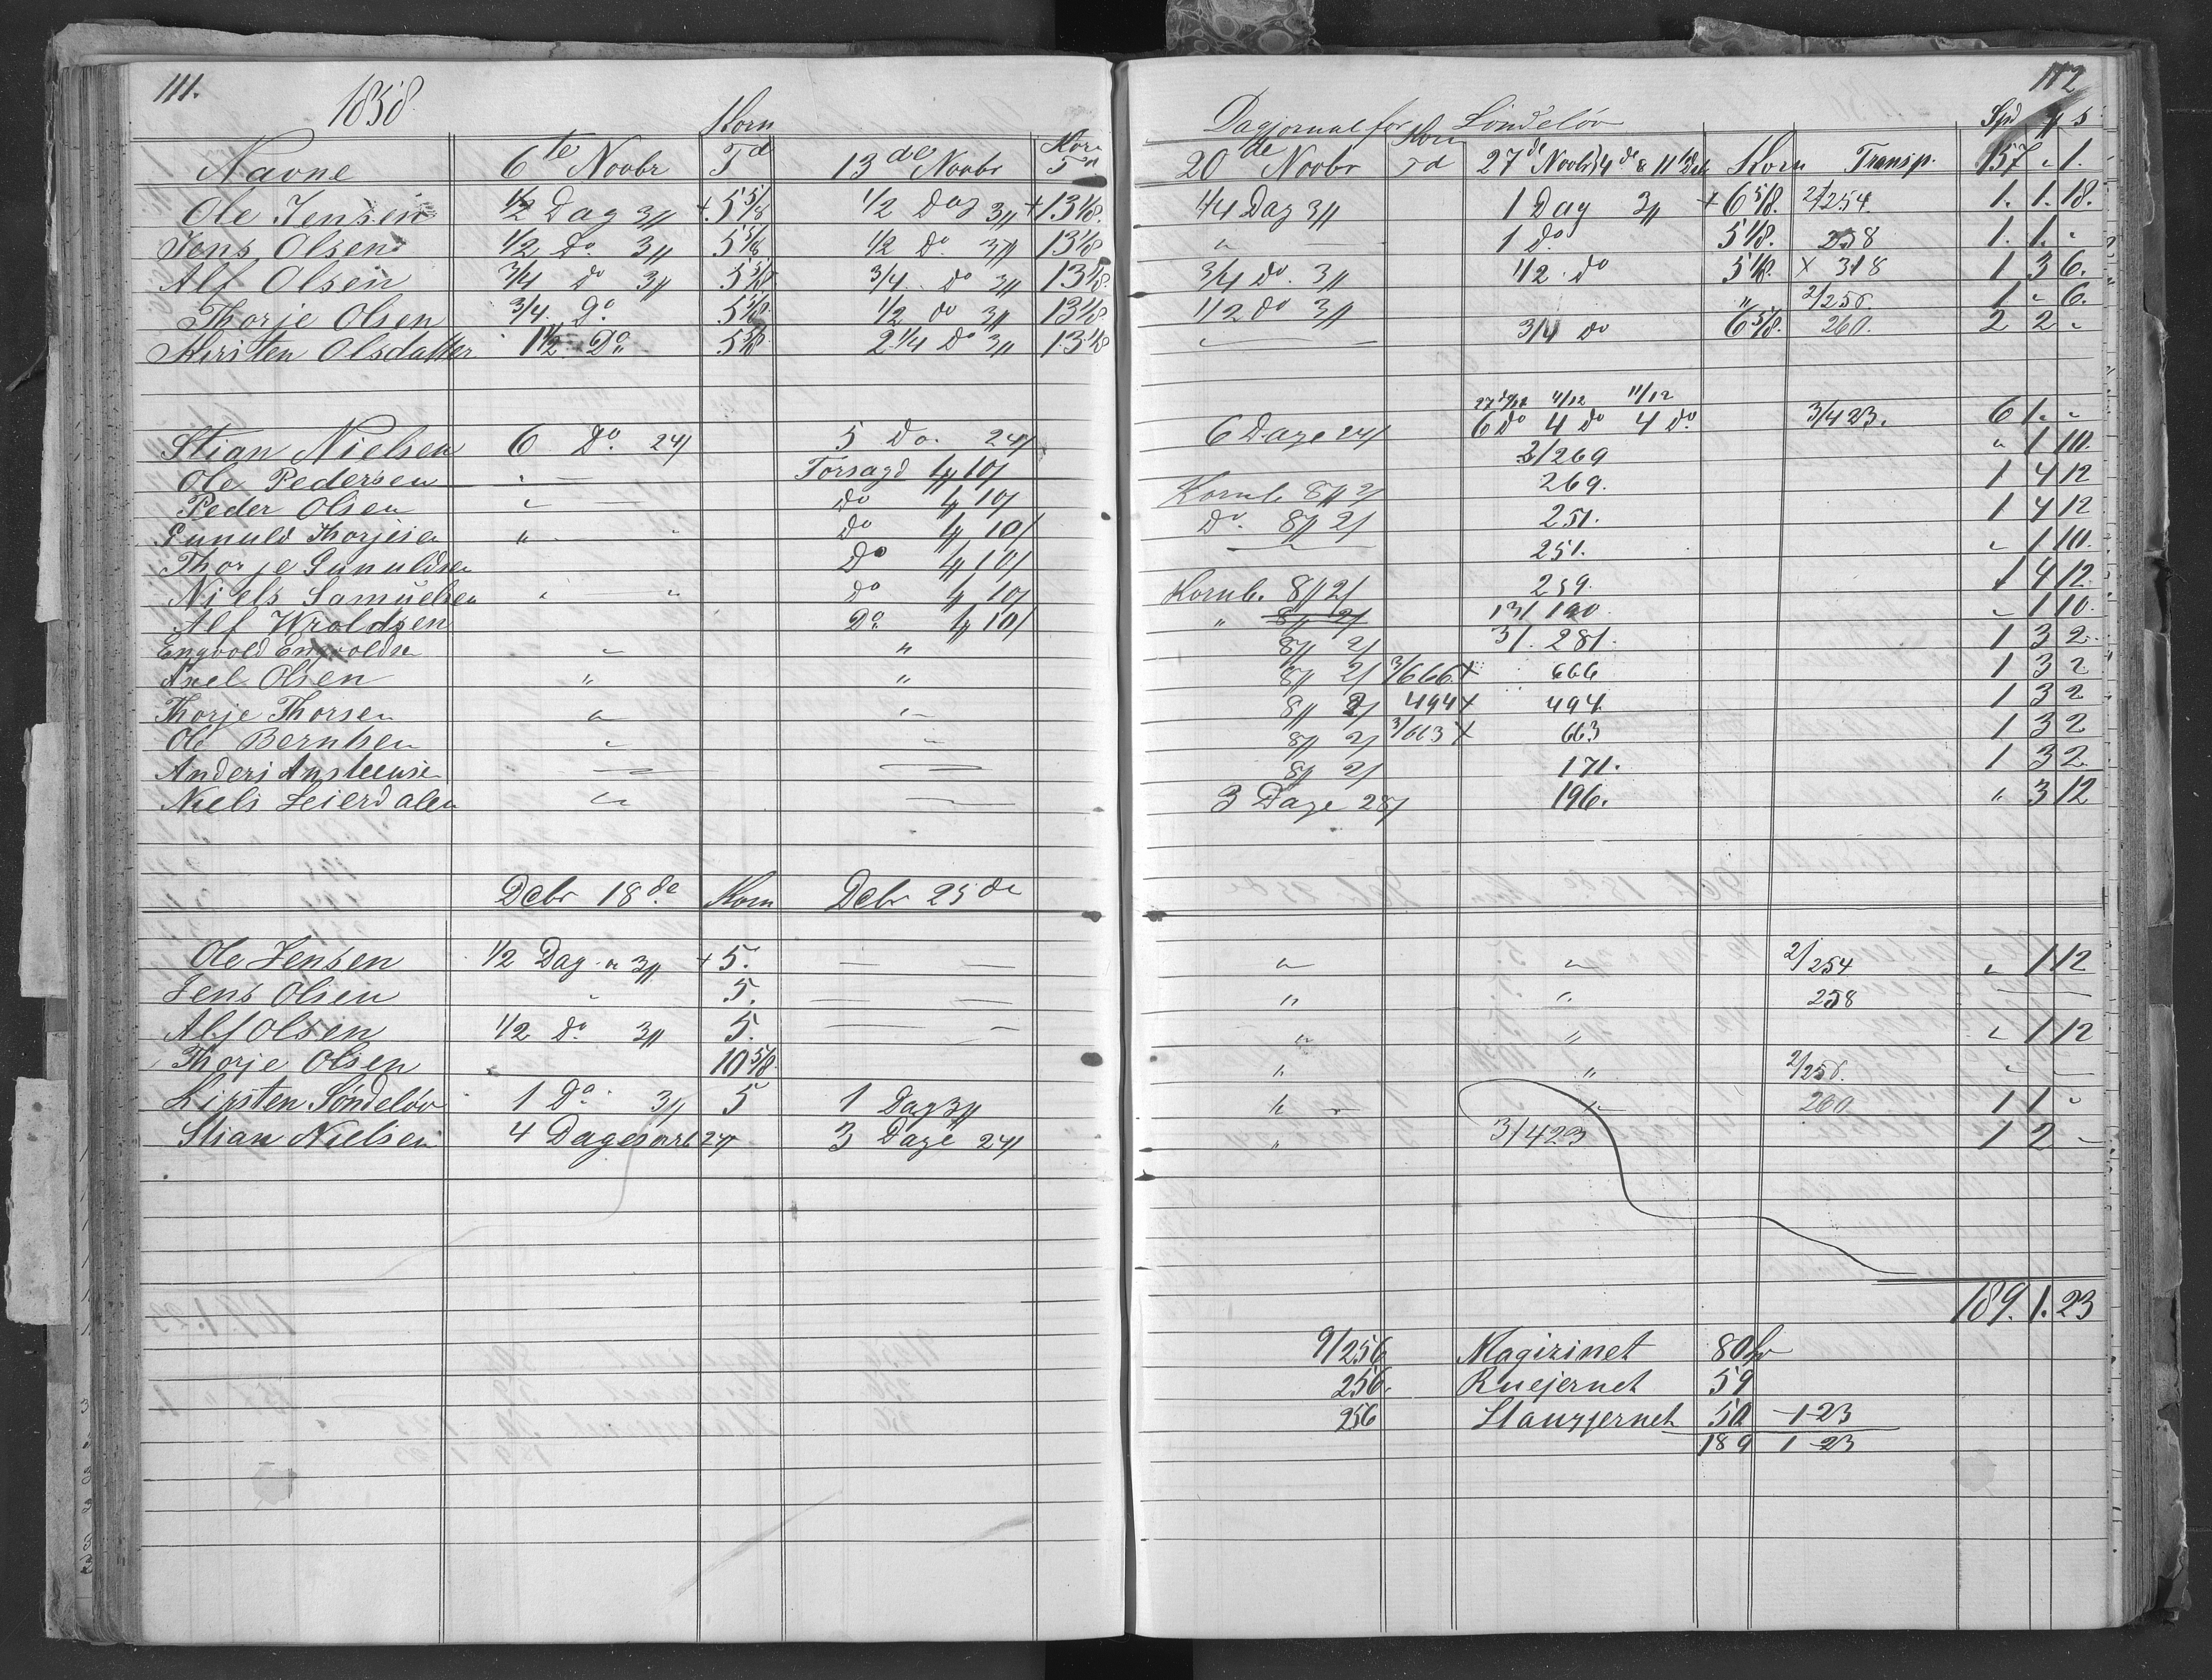 111.
1858
Korn
Navne 6te Novbr Td 13de Novbr Korn Td
Ole Jensen 1/2 Dag 3# + 5 5/8 1/2 Dag 3# + 13 1/8.
Jens Olsen 1/2 Do 3# 5 5/8 1/2 Do. 3# 13 1/8
Alf Olsen 3/4 do 3# 5 5/8 3/4 do 3# 13 1/8.
Thorje Olsen 3/4. Do 5 5/8. 1/2 do 3# 13 1/8
Kirsten Olsdatter 1 1/2 Do 5 5/8 2 1/4 Do 3# 13 1/8
Stian Nielsen 6 Do. 24/ 5 Do. 24/
Ole Pedersen " Torsagd 4# 10/
Peder Olsen " do 4# 10/
Gunuld Thorjesen " " do 4# 10/
Thorje Gunuldsen Do 4# 10/
Niels Samuelsen " " do 4# 10/
Alf Wroldsen Do. 4# 10/
Engvold Engvoldsen " "
Axel Olsen " "
Thorje Thorsen " "
Ole Berntsen " "
Anders Ansteense
Niels Leierdalen "
Debr 18de. Korn Debr 25de
Ole Jensen 1/2 Dag a 3# + 5. — —
Jens Olsen " 5. — —
Alf Olsen 1/2 do. 3# 5. — —
Thorje Olsen 10 5/8.
Kirsten Söndelöv 1 Do. 3# 5 1 Dag 3#
Stian Nielsen 4 Dages 24/ 3 Dage 24/
112
Dagjornal for Söndelöv Spd # s
20de Novbr Korn Td 27de Novbr 4de & 11te Deb Korn Transp. 157 " 1.
1/4 Dag 3# 1 Dag 3# + 6 5/8. 2/254. 1. 1. 18.
" — 1 do. 5 1/8. 258 1. 1. "
3/4 do. 3# 1/2 do 5 1/8. x 318 1 3 6.
1/2 do 3# " 2/256 1 " 6.
" — 3/4 do 6 5/8. 260. 2 2 "
11/12 11/12
6 Dage 24/ 6 do 4 do 4 do. 3/423. 6 1. "
3/269 " 1 10.
Kornb. 8# 2/ 269. 1 4 12
Do. 8# 2/ 251. 1 4 12
— " — 251. " 1 10.
Kornb. 8# 2/ 259. 1 4 12.
" 8# 2/ 13/190. " 1 10.
8# 2/ 3/. 281. 1 3 2.
8# 2/ 3/666 x 666 1 3 2.
8# 2/ 494 x 494. 1 3 2
8# 2/ 3/663 x 663 1 3 2
8# 2/ 171. 1 3 2.
3 Dage 28/ 196. " 3 12
" " 2/254 " 1 12
" " 258 —
" " " 1 12
" " 2/256. " —
" " 260 1 1 "
" 3/423 1 2 —
189. 1. 23
9/256 Magizinet 80
256. Ruejernet 59
256 Stangjernet 50 -1-23
189 1 -23